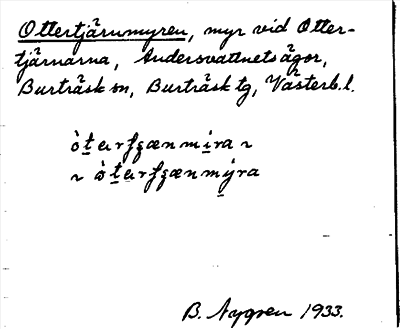 Ottertjärnmyren, myr vid Otter-
tjärnarna, Andersvattnets ägor,
Burträsk sn, Burträsk tg, Västerb. l.
B. Nygren 1933.